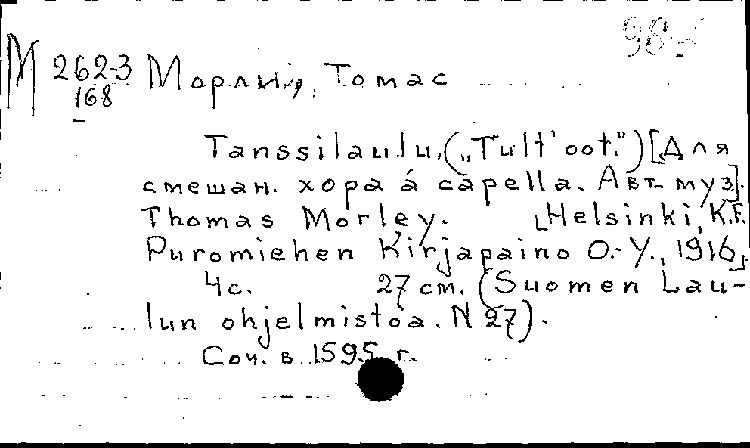 М 262-3 Морлий, Томас
168
Tanssilaulu. („Tult' oot.") [Для
смешан. хора á capella. Авт. муз].
Thomas Morley. [Helsinki, K.F.
Puromiehen Kirjapaino O.-Y., 1916]
4 с. 27 см. (Suomen Lau-
lun ohjelmistoa. N 27).
Соч. в 1595 г.